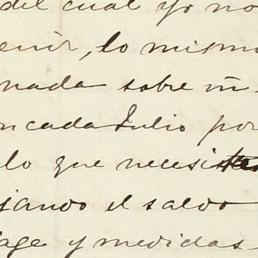 del cual yo no
enir, lo mismo
nada sobre m
n cada Julio por
lo que necesita
jando el saldo
age y medidas